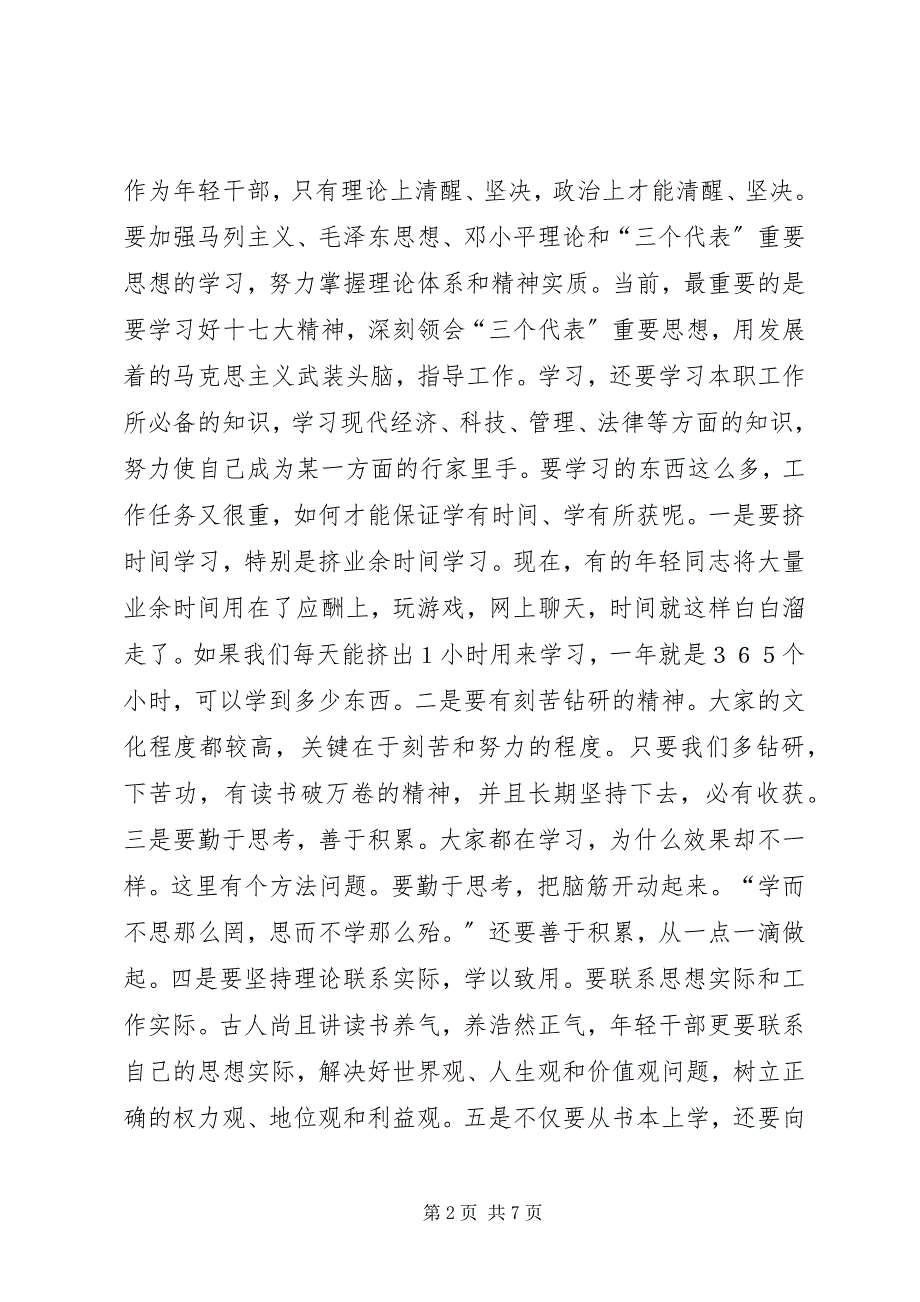 作为年轻干部，只有理论上清醒、坚决，政治上才能清醒、坚决。
要加强马列主义、毛泽东思想、邓小平理论和“三个代表〞重要
思想的学习，努力掌握理论体系和精神实质。当前，最重要的是
要学习好十七大精神，深刻领会“三个代表〞重要思想，用发展
着的马克思主义武装头脑，指导工作。学习，还要学习本职工作
所必备的知识，学习现代经济、科技、管理、法律等方面的知识，
努力使自己成为某一方面的行家里手。要学习的东西这么多，工
作任务又很重，如何才能保证学有时间、学有所获呢。一是要挤
时间学习，特别是挤业余时间学习。现在，有的年轻同志将大量
业余时间用在了应酬上，玩游戏，网上聊天，时间就这样白白溜
走了。如果我们每天能挤出１小时用来学习，一年就是３６５个
小时，可以学到多少东西。二是要有刻苦钻研的精神。大家的文
化程度都较高，关键在于刻苦和努力的程度。只要我们多钻研，
下苦功，有读书破万卷的精神，并且长期坚持下去，必有收获。
三是要勤于思考，善于积累。大家都在学习，为什么效果却不一
样。这里有个方法问题。要勤于思考，把脑筋开动起来。“学而
不思那么罔，思而不学那么殆。〞还要善于积累，从一点一滴做
起。四是要坚持理论联系实际，学以致用。要联系思想实际和工
作实际。古人尚且讲读书养气，养浩然正气，年轻干部更要联系
自己的思想实际，解决好世界观、人生观和价值观问题，树立正
确的权力观、地位观和利益观。五是不仅要从书本上学，还要向
第 2 页 共 7 页